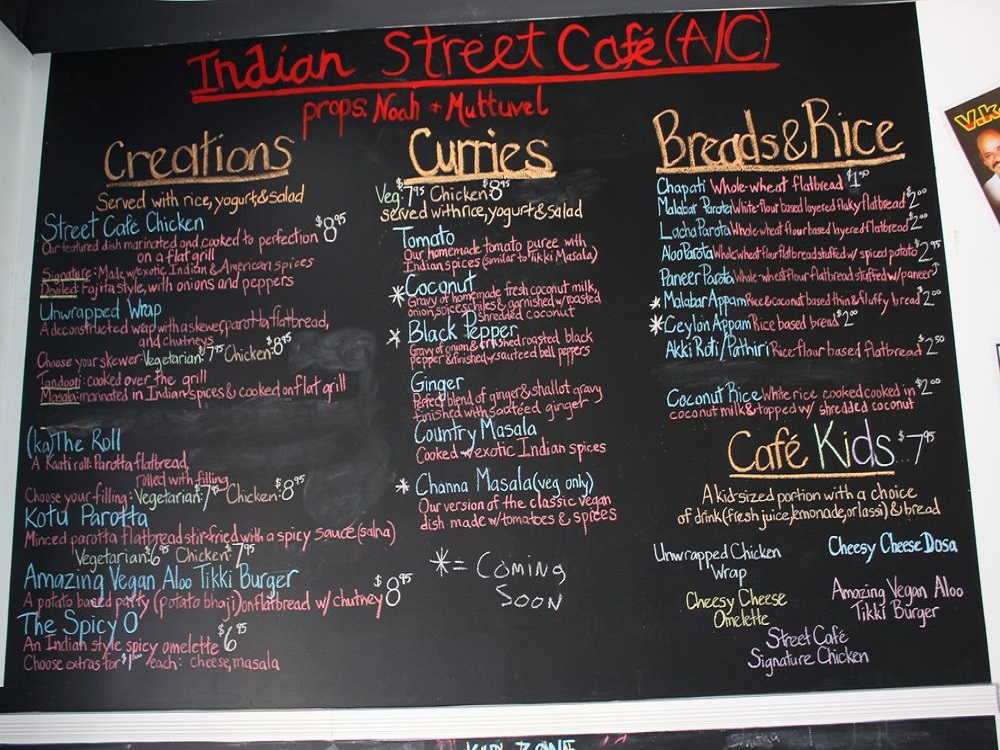 Indian Street Café (A/C)
props: Noah + Muttuvel
Creations
Served with rice, yogurt & salad
Street Cafe Chicken $8.95
Our featured dish marinated and cooked to perfection
on a flat grill
Signature: Made w/exotic Indian & American spices
Deviled: Fajita style, with onions and peppers
Unwrapped Wrap
A deconstructed wrap with a skewer, parotta, flatbread,
and chutneys
Choose your skewer: Vegetarian: $7.95 Chicken: $8.95
Tandoori: cooked over the grill
Masala: marinated in Indian spices & cooked on flat grill
(ka)The Roll
A Kaati roll: Parotta flatbread,
rolled with filling
Choose your filling: Vegetarian: $7.95 Chicken: $8.95
Kotu Parotta
Minced parotta flatbread stir-fried with a spicy sauce (salna)
Vegetarian: $6.95 Chicken: $7.95
Amazing Vegan Aloo Tikki Burger
A potato based patty (potato bhaji) on flatbread w/ chutney $8.95
The Spicy O'
An Indian style spicy omelette $6.95
Choose extras for $1.00 each: cheese, masala
Curries
Veg: $7.95 Chicken: $8.95
served with rice, yogurt & salad
Tomato
Our homemade tomato puree with
Indian spices (similar to Tikki Masala)
* Coconut
Gravy of homemade fresh coconut milk,
onion, spices, chiles & garnished w/roasted
shredded coconut
* Black Pepper
Gravy of onion & crushed roasted black
pepper & finished w/ sauteed bell peppers
Ginger
Perfect blend of ginger & shallot gravy
finished with sauteed ginger
Country Masala
Cooked w/exotic Indian spices
* Channa Masala (veg only)
Our version of the classic vegan
dish made w/tomatoes & spices
* = Coming
Soon
Breads & Rice
Chapati Whole-wheat flatbread $1.50
Malabar Parota White-flour based layered flaky flatbread $2.00
Lacha Parota Whole-wheat flour based layered flatbread $2.00
Aloo Parota Whole wheat flour flatbread stuffed w/ spiced potato $2.95
Paneer Parota Whole-wheat flour flatbread stuffed w/ paneer
* Malabar Appam Rice & coconut based thin & fluffy bread $2.00
* Ceylon Appam Rice based bread $2.00
Akki Roti/Pathiri Rice flour based flatbread $2.50
Coconut Rice White rice cooked cooked in $2.00
coconut milk & topped w/ shredded coconut
Café Kids...$7.95
A kid sized portion with a choice
of drink (fresh juice, lemonade, or lassi) & bread
Unwrapped Chicken
Wrap
Cheesy Cheese Dosa
Cheesy Cheese
Omelette
Amazing Vegan Aloo
Tikki Burger
Street Café
Signature Chicken
V.K